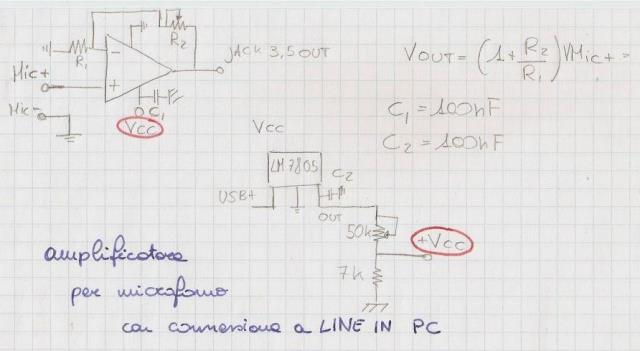 R1
R2
JACK 3,5 OUT
Mic+
Mic-
C1
Vcc
VOUT = (1 + R2/R1) VMic+ =
C1 = 100nF
C2 = 100nF
Vcc
LM7805
C2
USB+
OUT
50k
+Vcc
7k
amplificatore
per microfono
con connessione a LINE IN PC